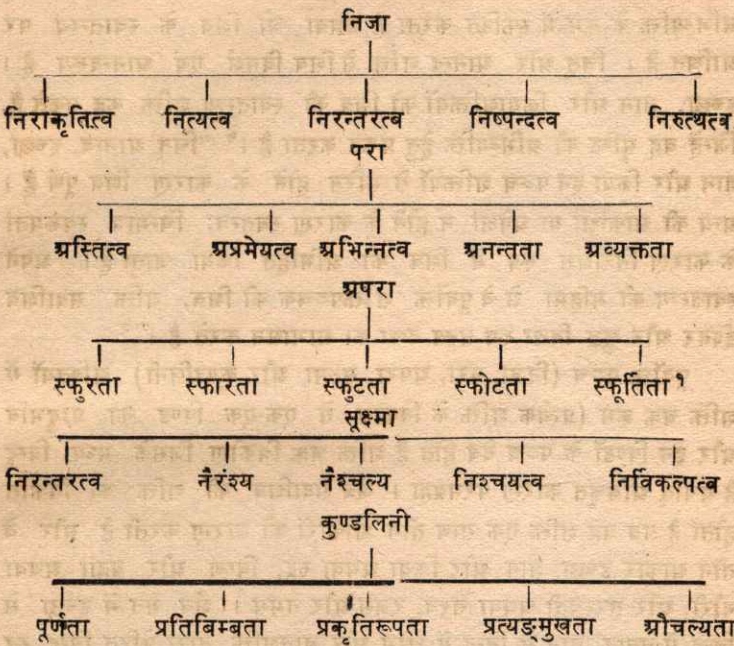 निजा
निराकृतित्व नित्यत्व निरन्तरत्व निष्पन्दत्व निरुत्थत्व
परा
अस्तित्व अप्रमेयत्व अभिन्नत्व अनन्तता अव्यक्तता
अपरा
स्फुरता स्फारता स्फुटता स्फोटता स्फूर्तिता१
सूक्ष्मा
निरन्तरत्व नैरंश्य नैश्चल्य निश्चयत्व निर्विकल्पत्व
कुण्डलिनी
पूर्णता प्रतिबिम्बता प्रकृतिरूपता प्रत्यङ्मुखता औचल्यता